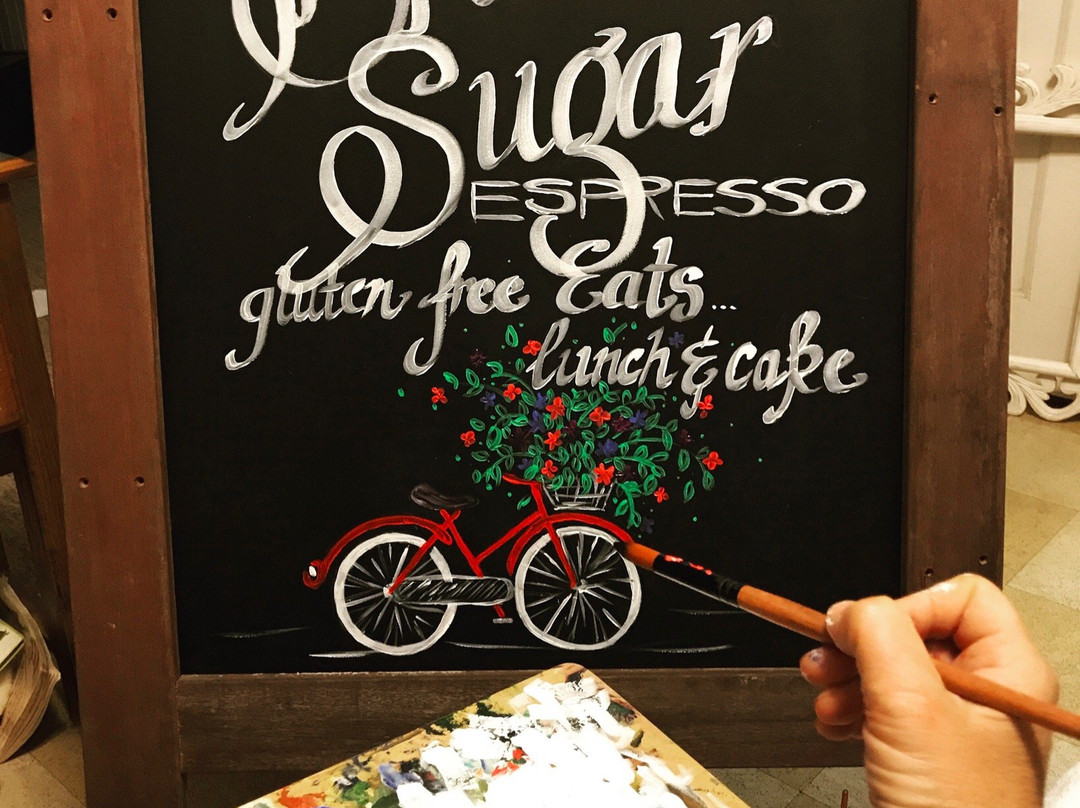 Sugar
ESPRESSO
gluten free Eats...
lunch & cake